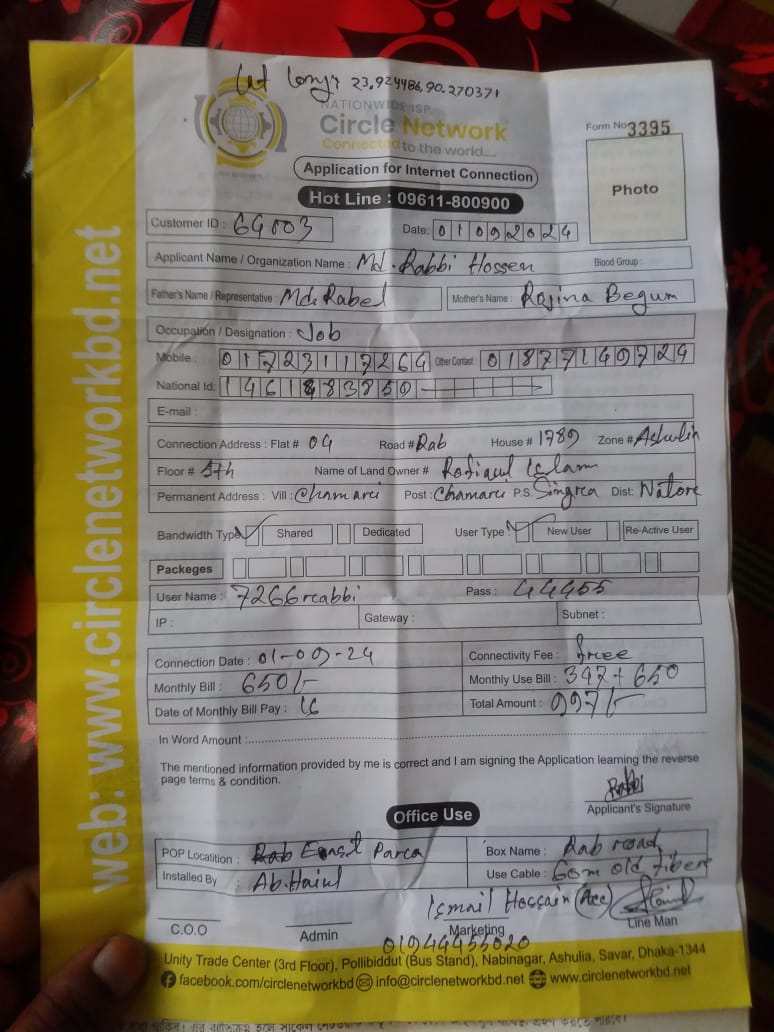 Lat long: 23.924486,90.270371
NATIONWIDE ISP
Circle Network
Connected to the world....
Form No 3395
Application for Internet Connection
Photo
Hot Line : 09611-800900
Customer ID : 64003
Date: 01092024
Applicant Name / Organization Name : Md. Rabbi Hossen
Blood Group :
Father's Name / Representative : Md. Rabel
Mother's Name : Rojina Begum
Occupation / Designation : Job
Mobile : 01723117264 Other Contact : 01877149724
National Id: 146183850
E-mail :
Connection Address : Flat # 04 Road # Rab House # 1789 Zone # Ashulia
Floor # 5th Name of Land Owner # Rofiqul Islam
Permanent Address : Vill : Chamari Post : Chamari P.S. Singra Dist: Natore
Bandwidth Type Shared Dedicated User Type : New User Re-Active User
Packeges
User Name : 7266rabbi Pass : 44455
IP : Gateway : Subnet :
Connection Date : 01-09-24 Connectivity Fee : free
Monthly Bill : 650/- Monthly Use Bill : 347 + 650
Date of Monthly Bill Pay : Total Amount : 997/-
In Word Amount :
The mentioned information provided by me is correct and I am signing the Application learning the reverse
page terms & condition.
Rabbi
Applicant's Signature
Office Use
POP Locatition : Box Name : Rab road,
Installed By : Use Cable : 60m old fiber
Ismail Hossain (Acc)
C.O.O Admin Marketing Line Man
01944455020
Unity Trade Center (3rd Floor), Pollibiddut (Bus Stand), Nabinagar, Ashulia, Savar, Dhaka-1344
facebook.com/circlenetworkbd info@circlenetworkbd.net www.circlenetworkbd.net
web: www.circlenetworkbd.net